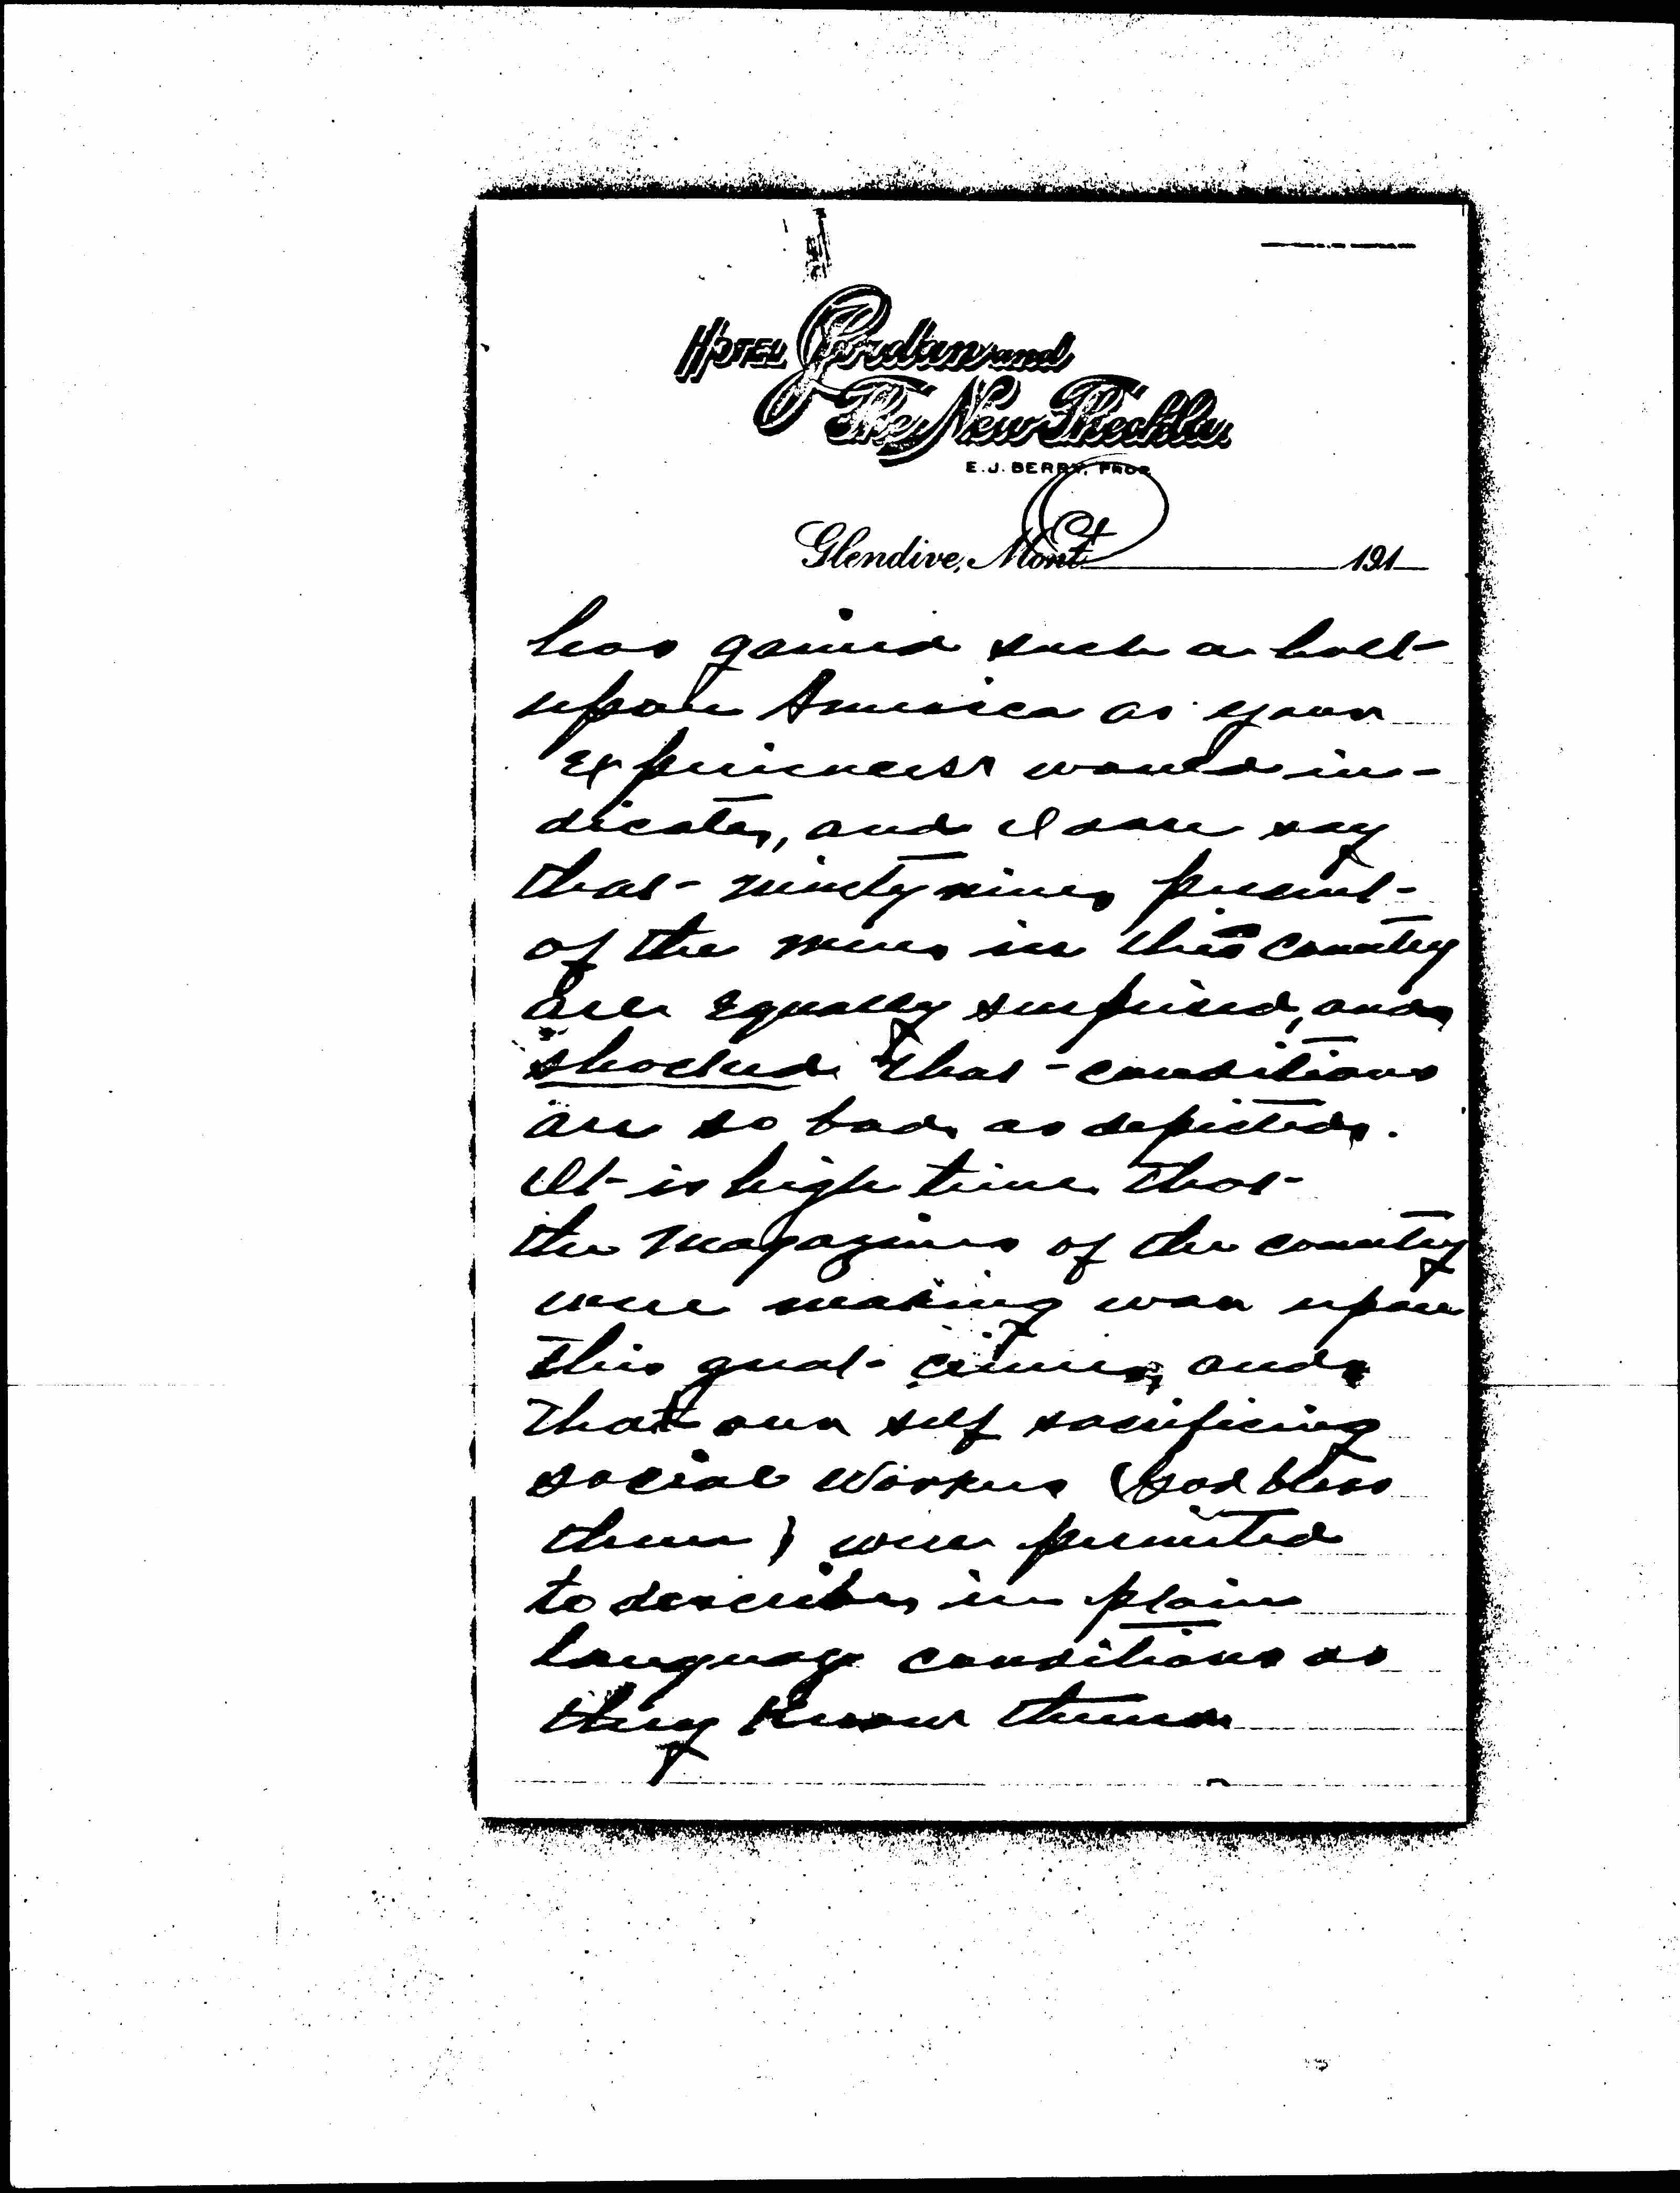 HOTEL Jordan and
The New Thechla
E.J. BERRY, PROP.
Glendive, Mont 191
has gained such a hold
upon America as your
experiences would in-
dicate, and I dare say
that ninety nine percent
of the men in this country
are equally surprised, and
shocked that conditions
are so bad as depicted.
It is high time that
the magazines of the country
were making war upon
this great crime, and
that our self sacrificing
social workers (God bless
them) were permitted
to describe in plain
language conditions as
they know them